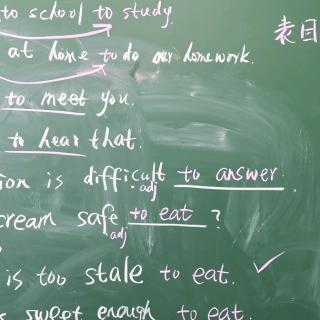 to school to study.
表目
at home to do our homework.
to meet you.
to hear that.
ion is difficult to answer.
adj
cream safe to eat ?
adj
is too stale to eat. ✓
s sweet enough to eat.